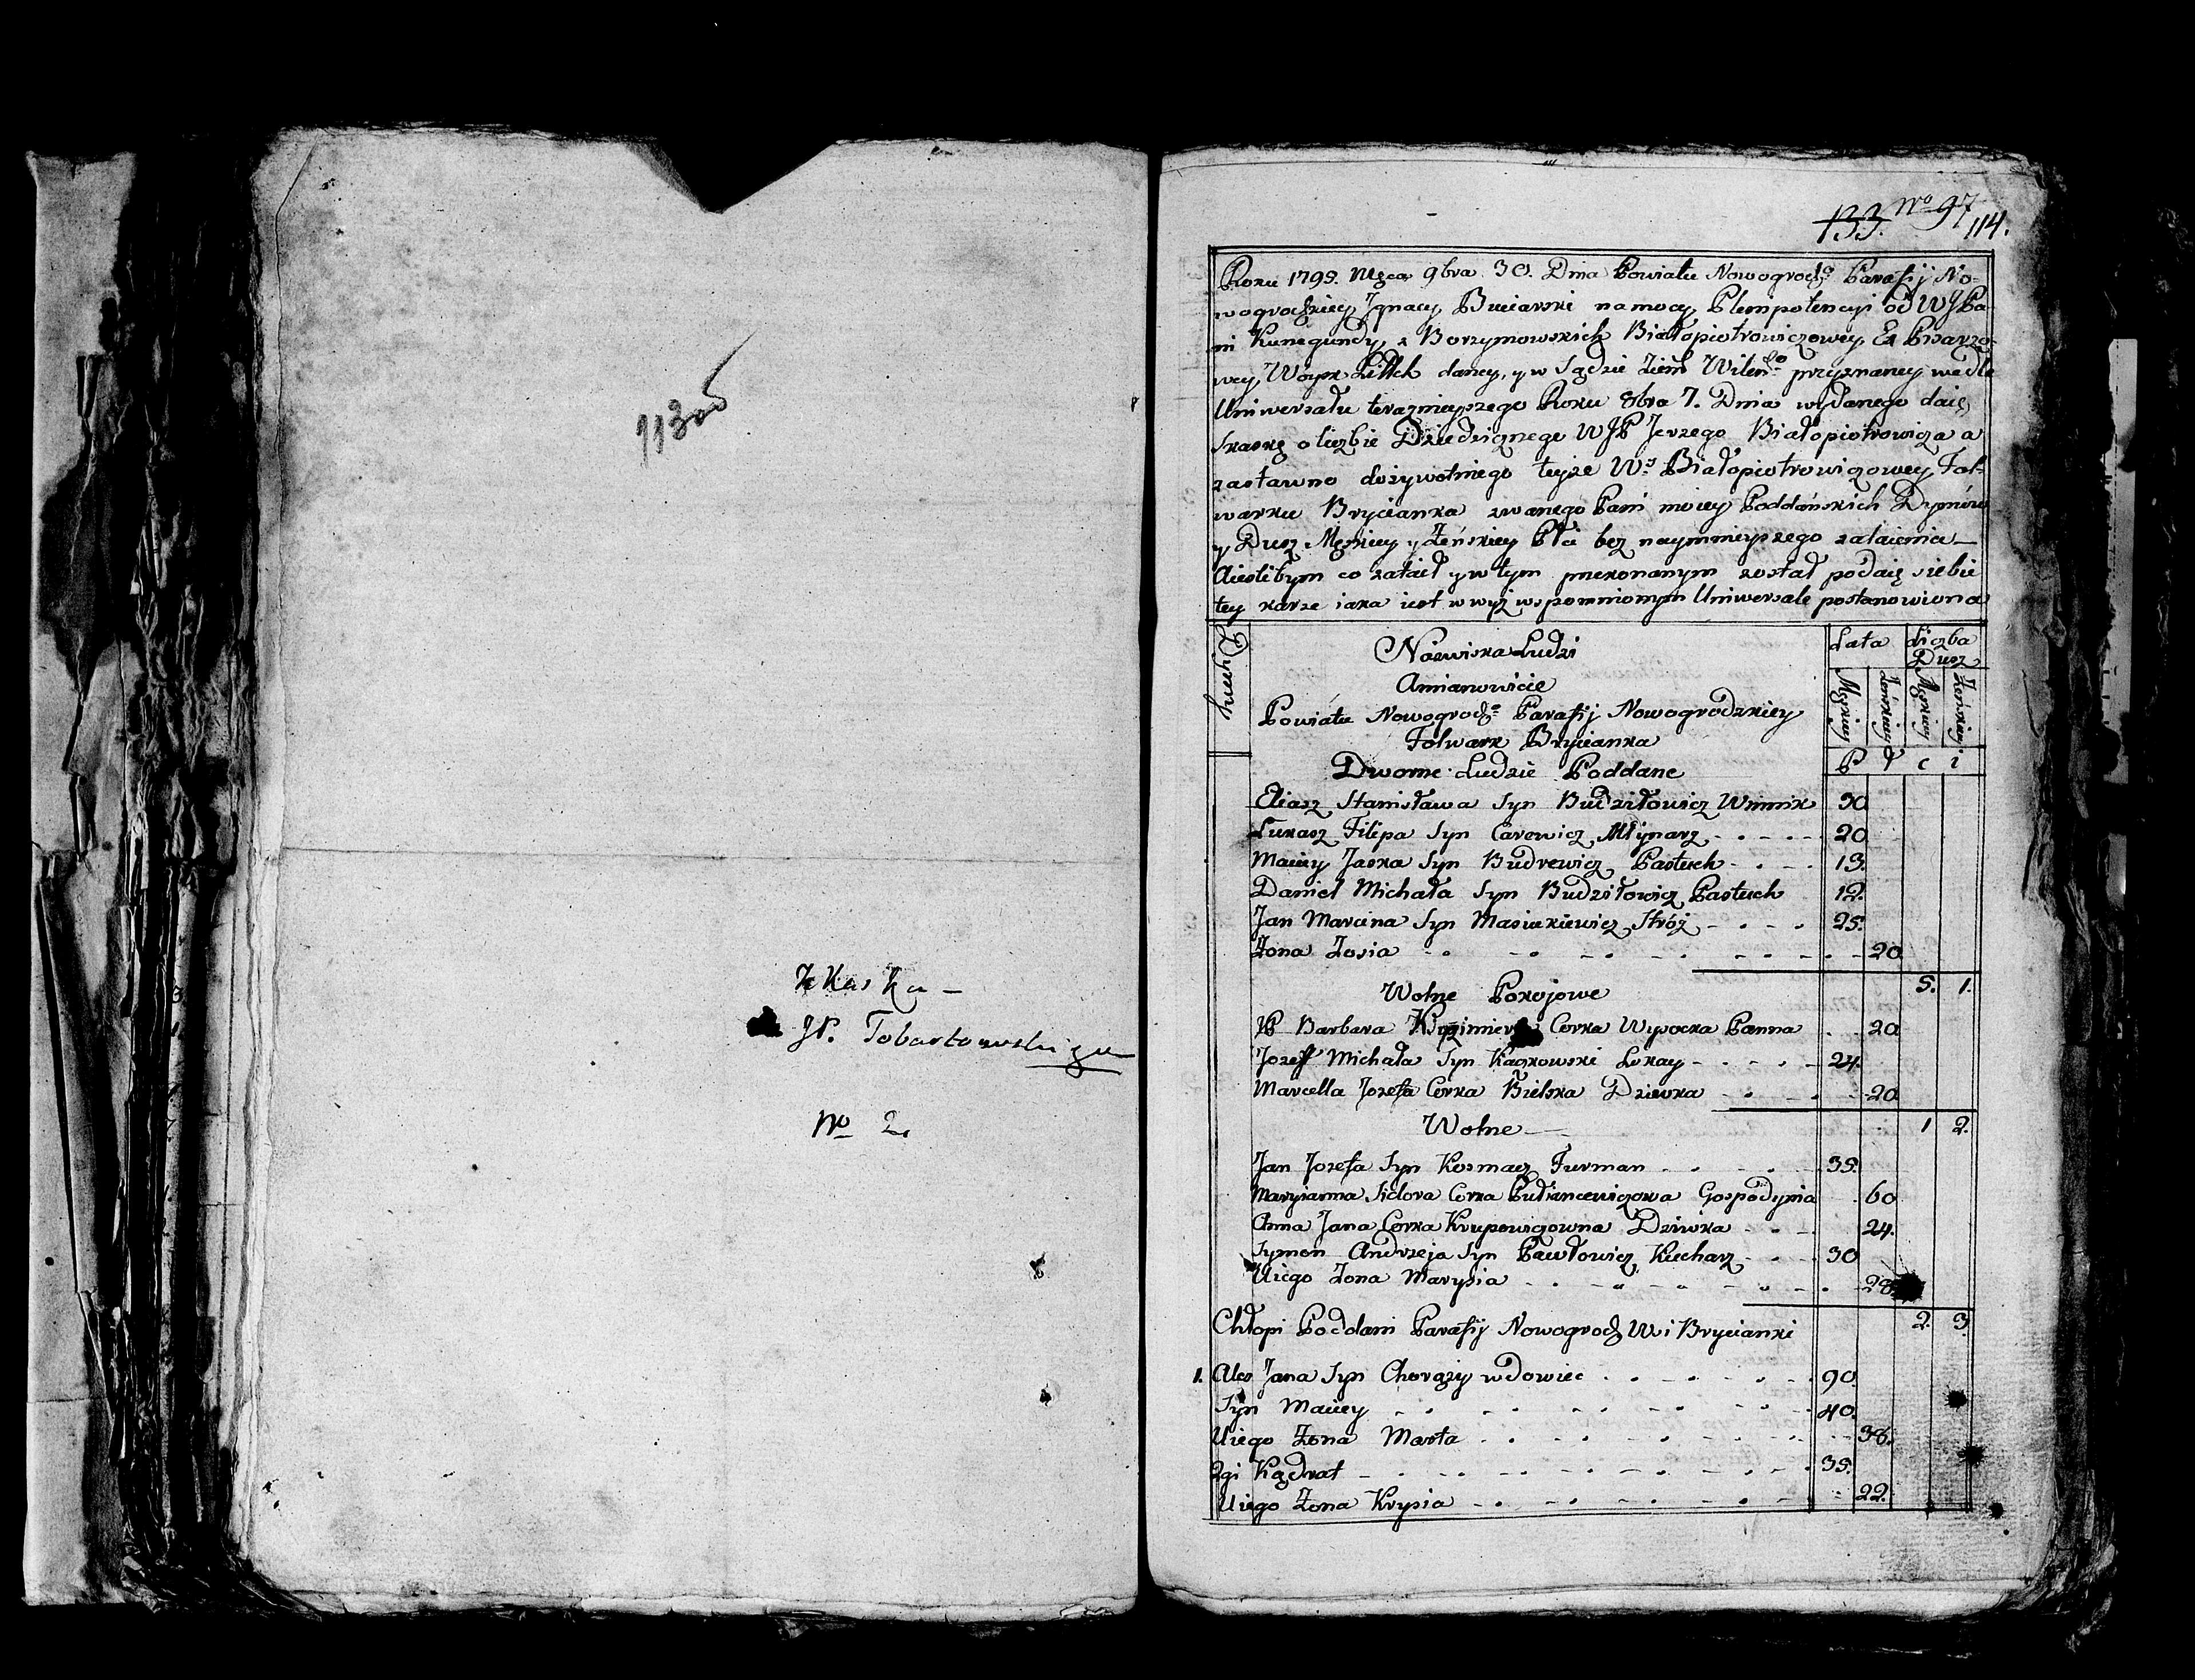 113 об
Zkaska –
JP. Tobartowskiego
No 2.
133. No 97
114.
Roku 1795. Mca 9bra 30. Dnia Powiatu Nowogrodgo Parafij No-
wogrodzkiey Jgnacy Buciarski na mocy Plenipotencyi od WJPa-
ni Kunegundy z Borzymowskich Białopiotrowiczowey Ex Pisarzo-
wey Woysk Littch daney, y w Sądzie Ziem Wilengo przyznaney wedle
Uniwersału teraznieyszego Roku 8bra 7. Dnia wydanego daię
Skaskę o liczbie Dziedzicznego WJP Jerzego Białopiotrowicza a
zastawno dożywotniego teyże Wy Białopiotrowiczowey Fol-
warku Brycianka zwanego Pani moiey Poddańskich Dymów
y Dusz Męskiey y Żeńskiey Płci bez naymnieyszego zataienia –
A ieslibym co zataił y w tym przekonanym został podaię siebie
tey karze iaka iest w wyż wspomnionym Uniwersale postanowiona
Dymy
Nazwiska Ludzi
Amianowicie
Powiatu Nowogrodo Parafij Nowogrodzkiey
Folwark Brycianka
Lata
Liczba Dusz
Męskiey Żenskiey Męskiey Żenskiey
P ł c i
Dworne Ludzie Poddane
Eliasz Stanisława Syn Budziłowicz Winnik 30
Łukasz Filipa Syn Carewicz Młynarz - - - - 20
Maciey Jaska Syn Budrewicz Pastuch - - - 13.
Daniel Michała Syn Budziłowicz Pastuch 12.
Jan Marcina Syn Masiukiewicz Stróż - - - 25.
Żona Zosia - - - - - - 20
5. 1.
Wolne Pokojowe
JP Barbara Kazimierza Corka Wysocka Panna - - 20
Jozeff Michała Syn Kaczkowski Lokay - - - - 24.
Marcella Jozefa Corka Bielska Dziewka - - - 20
1 2.
Wolne –
Jan Jozefa Syn Kosmacz Furman - - - - 35.
Maryianna Sidora Corka Gospodynia - 60
Anna Jana Corka Krupowiczowna Dziewka - - - 24.
Symon Andrzeja Syn Pawłowicz Kucharz - - - 30
U iego Żona Marysia - - - - - - 28
2. 3
Chłopi Poddani Parafij Nowogrodz Wsi Brycianki
1. Alex Jana Syn Chorąży wdowiec - - - - 90
Syn Maciey - - - - - - 40.
U iego Żona Marta - - - - - - 38.
2gi Kądrat - - - - - - 35.
U iego Żona Krysia - - - - - - 22.